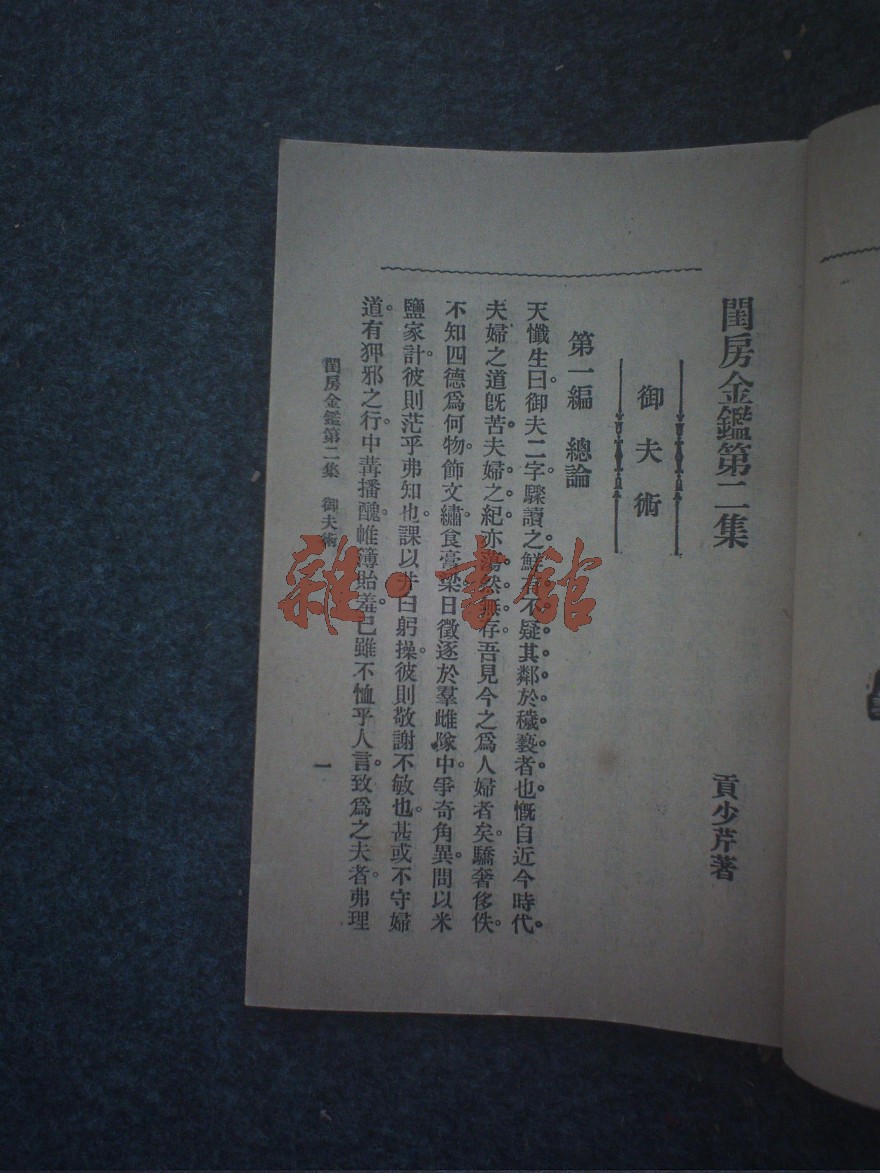 閨房金鑑第二集
貢少芹著
御夫術
第一編 總論
天懺生曰御夫二字。驟讀之鮮有不疑其鄰於穢褻者也慨自近今時代。
夫婦之道旣苦。夫婦之紀亦蕩然無存。吾見今之爲人婦者矣。驕奢侈佚。
不知四德爲何物。飾文繡。食膏粱日徵逐於羣雌隊中。爭奇角異。問以米
鹽家計。彼則茫乎弗知也。課以井臼躬操。彼則敬謝不敏也。甚或不守婦
道。有狎邪之行。中冓播醜。帷簿貽羞。己雖不恤乎人言。致爲之夫者。弗理
閨房金鑑第二集 御夫術
一
雜·書館